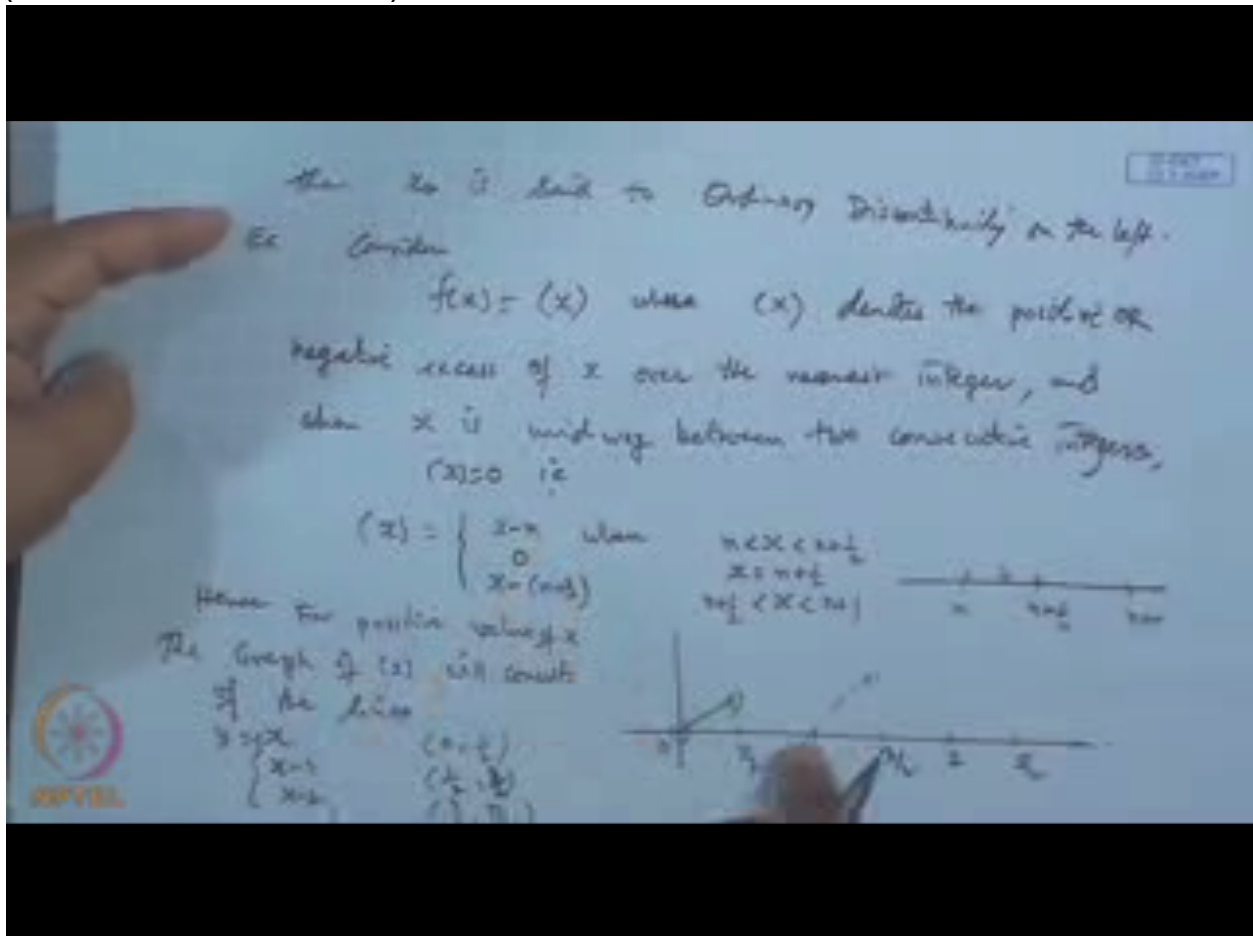 then x₀ is said to Ordinary Discontinuity on the left.
Ex Consider
f(x) = (x) where (x) denotes the positive OR
negative excess of x over the nearest integer, and
when x is midway between two consecutive integers,
(x)=0 ie
(x) = { x-n when n<x<n+½
0 x=n+½
x-(n+1) n+½<x<n+1
n n+½ n+1
Hence For positive values of x
The Graph of (x) will consists
of the lines
y = x (0, ½)
x-1
x-2
0 3/2 2
NPTEL